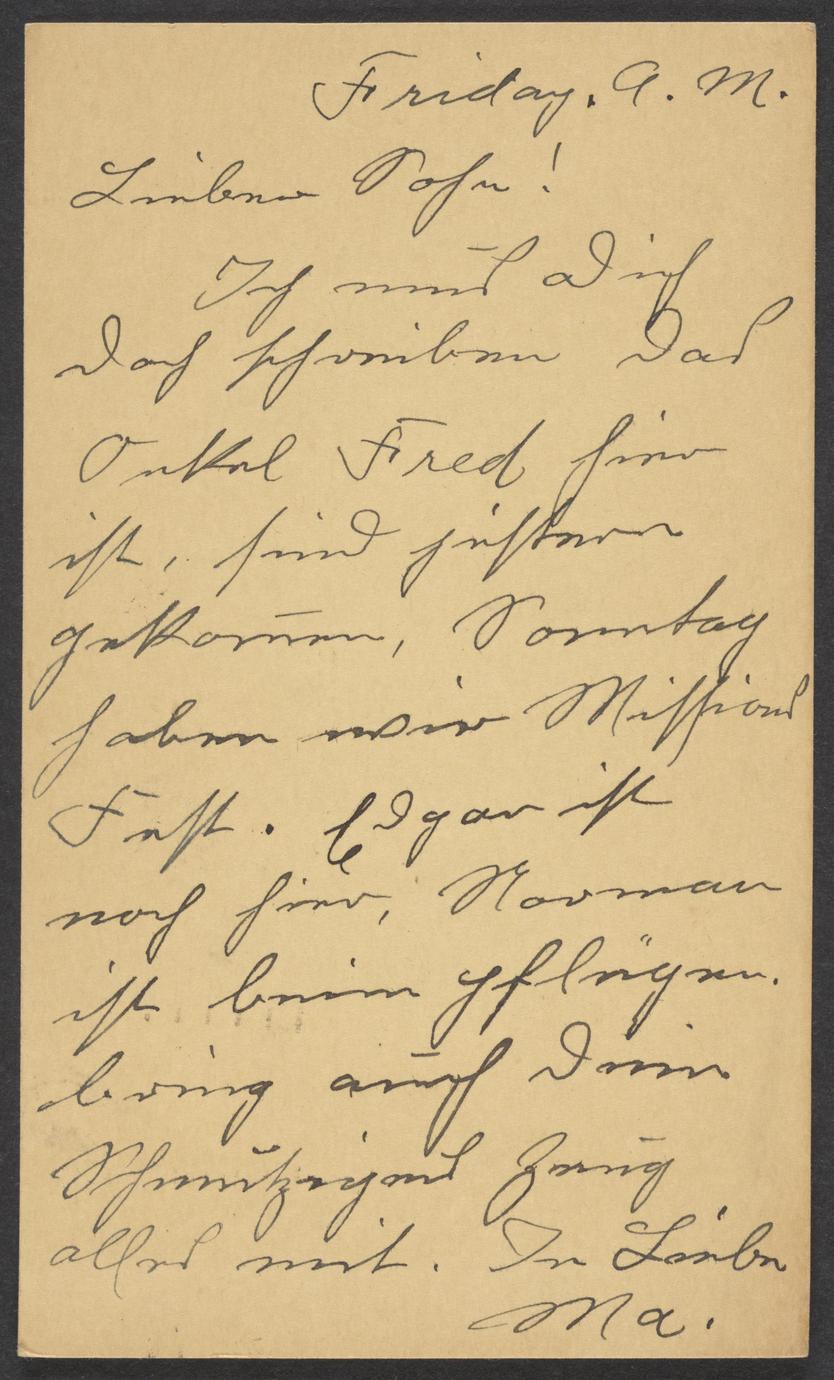 Friday. A. M.
Lieber Sohn!
Ich muß Dich
doch schreiben das
Onkel Fred hier
ist, sind gestern
gekom̄en, Sonntag
haben wir Missions
Fest. Edgar ist
noch hier, Norman
ist beim pflügen.
bring auch dein
Schmutziges Zeug
alles mit. In Liebe
Ma.